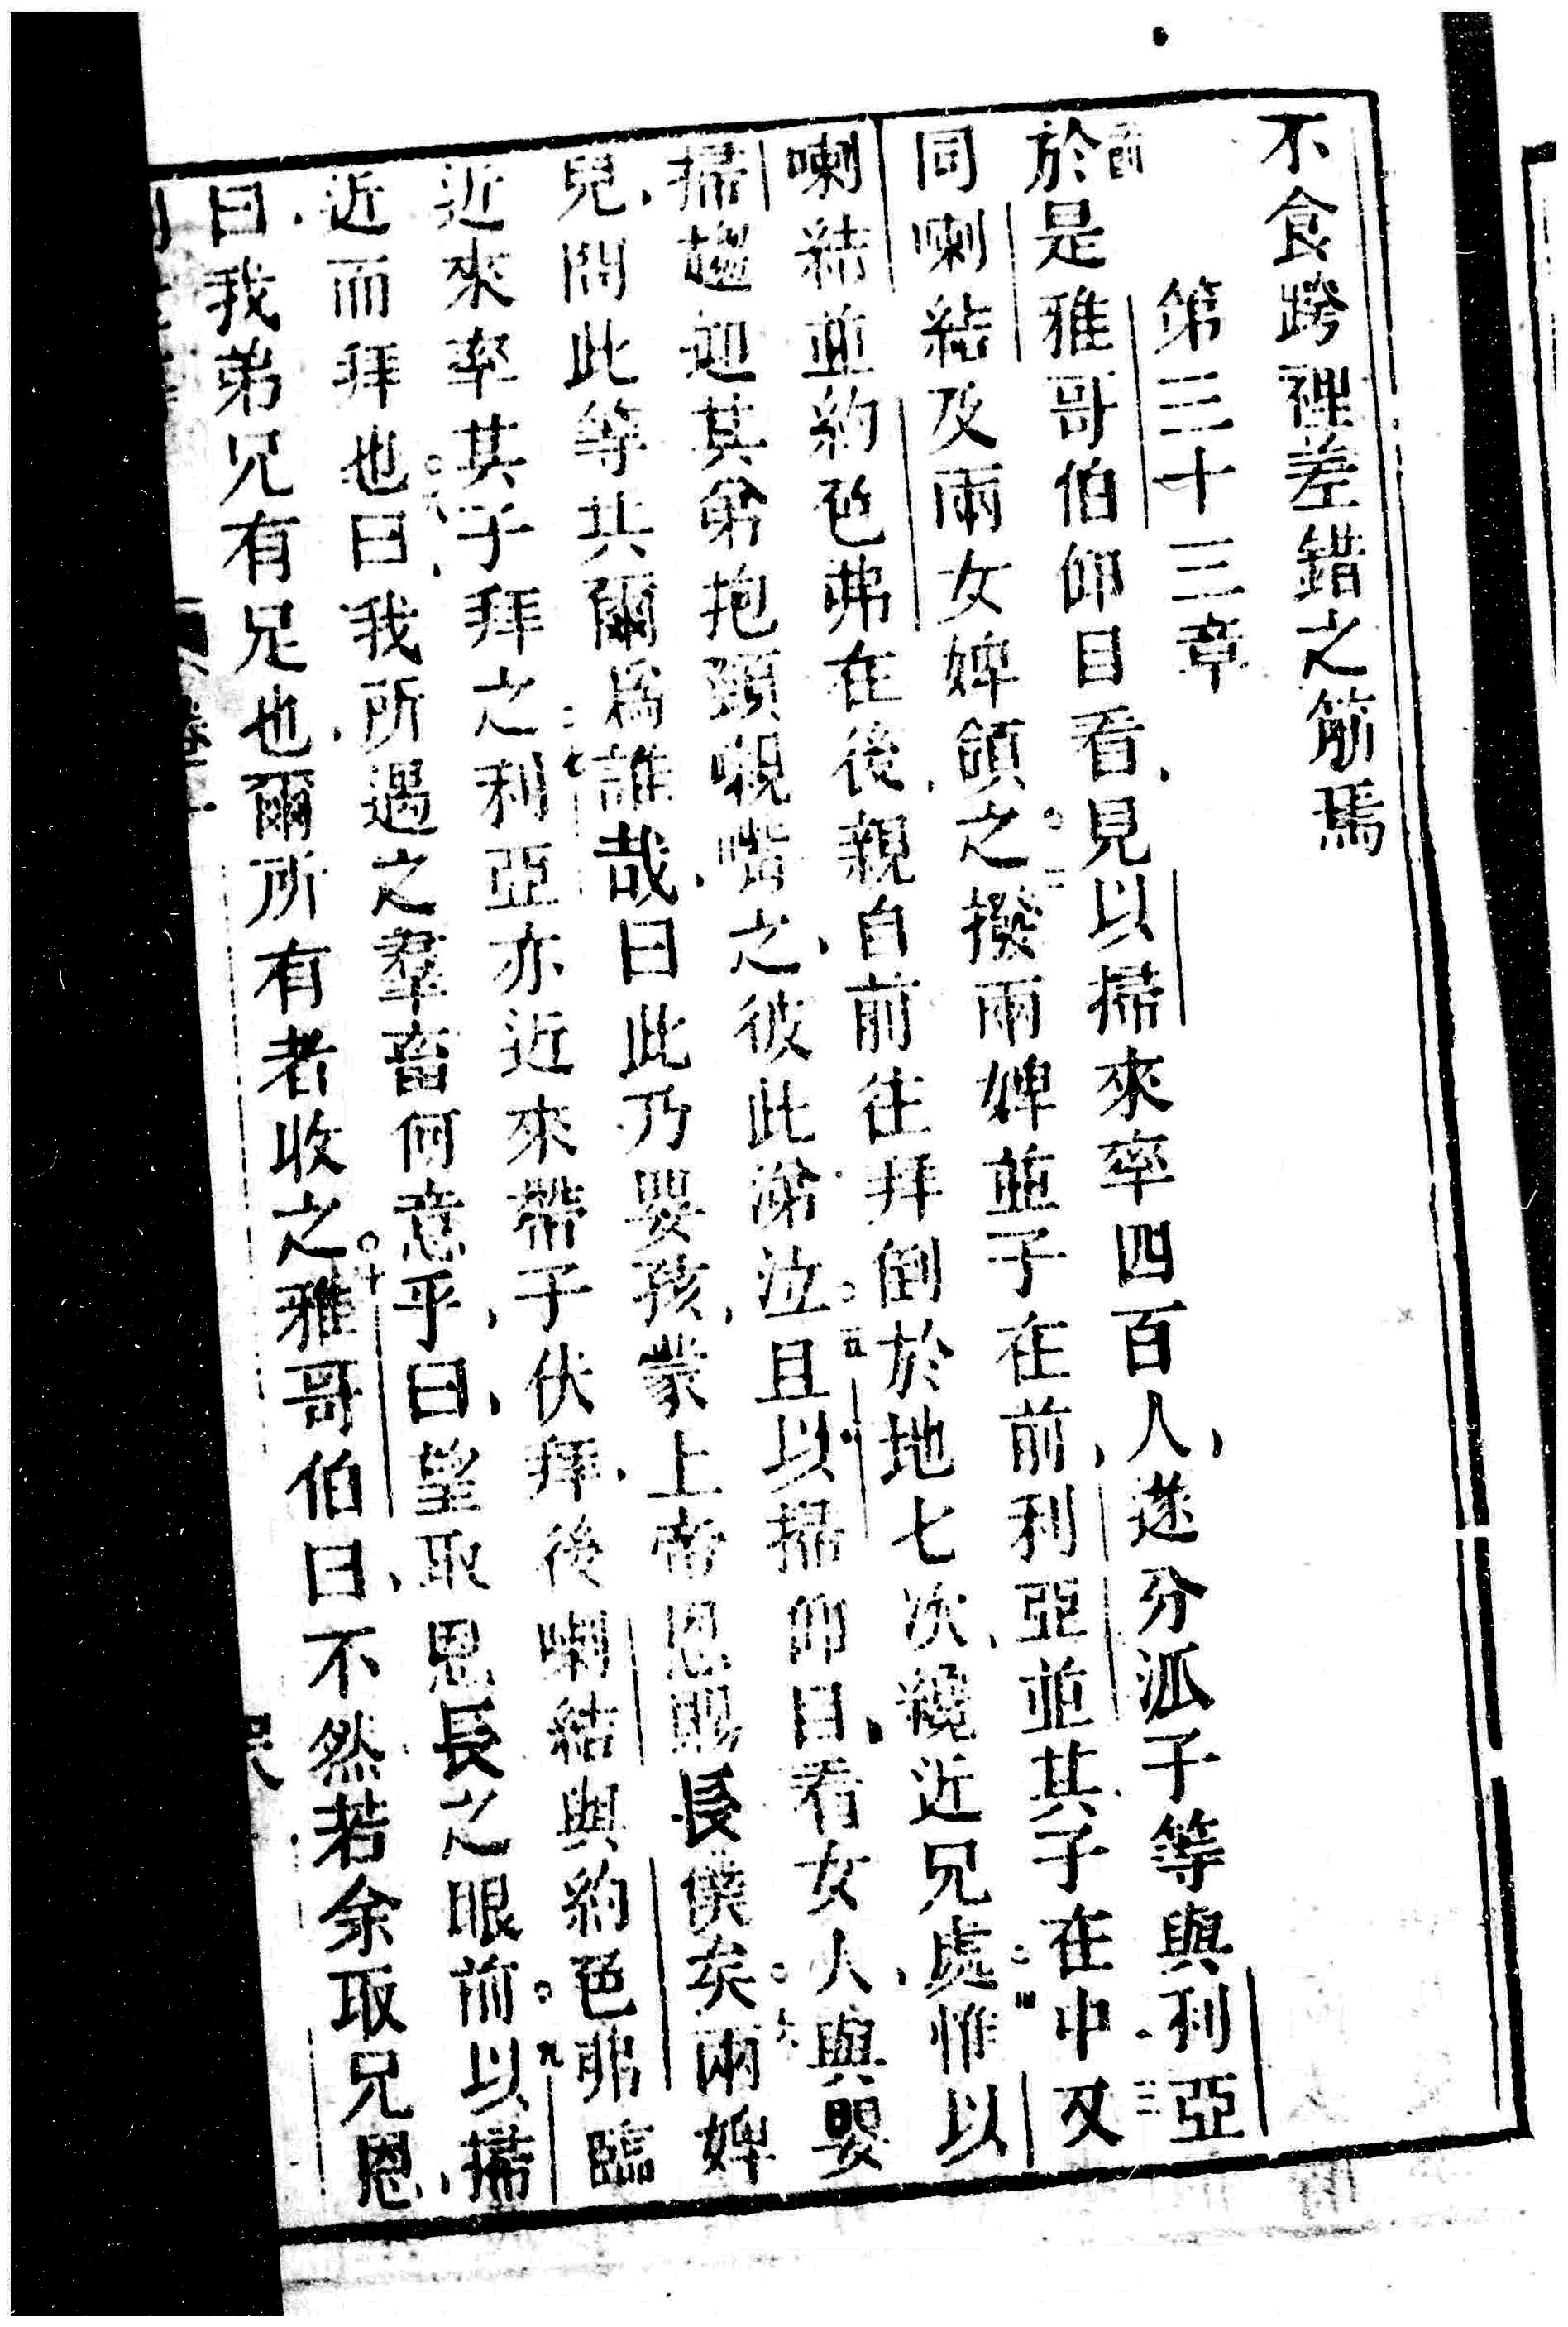 不食跨裡差錯之筋焉
第三十三章
於是雅哥伯仰目看、見以掃來率四百人、遂分派子等與利亞
同喇結及兩女婢、領之。二撥兩婢並子在前、利亞並其子在中、及
喇結並約色弗在後、親自前往拜倒於地七次、纔近兄處。四惟以
掃趨迎其弟抱頸嘴之、彼此涕泣。五且以掃仰目、看女人與嬰
兒、問此等共爾爲誰哉、曰此乃嬰孩、蒙上帝恩賜長僕矣。六兩婢
近來率其子拜之。七利亞亦近來帶子伏拜、後喇結與約色弗臨
近而拜也。八曰、我所遇之羣畜何意乎、曰、望取恩長之眼前。九以掃
曰、我弟兄有足也、爾所有者收之。十雅哥伯曰、不然若余取兄恩、